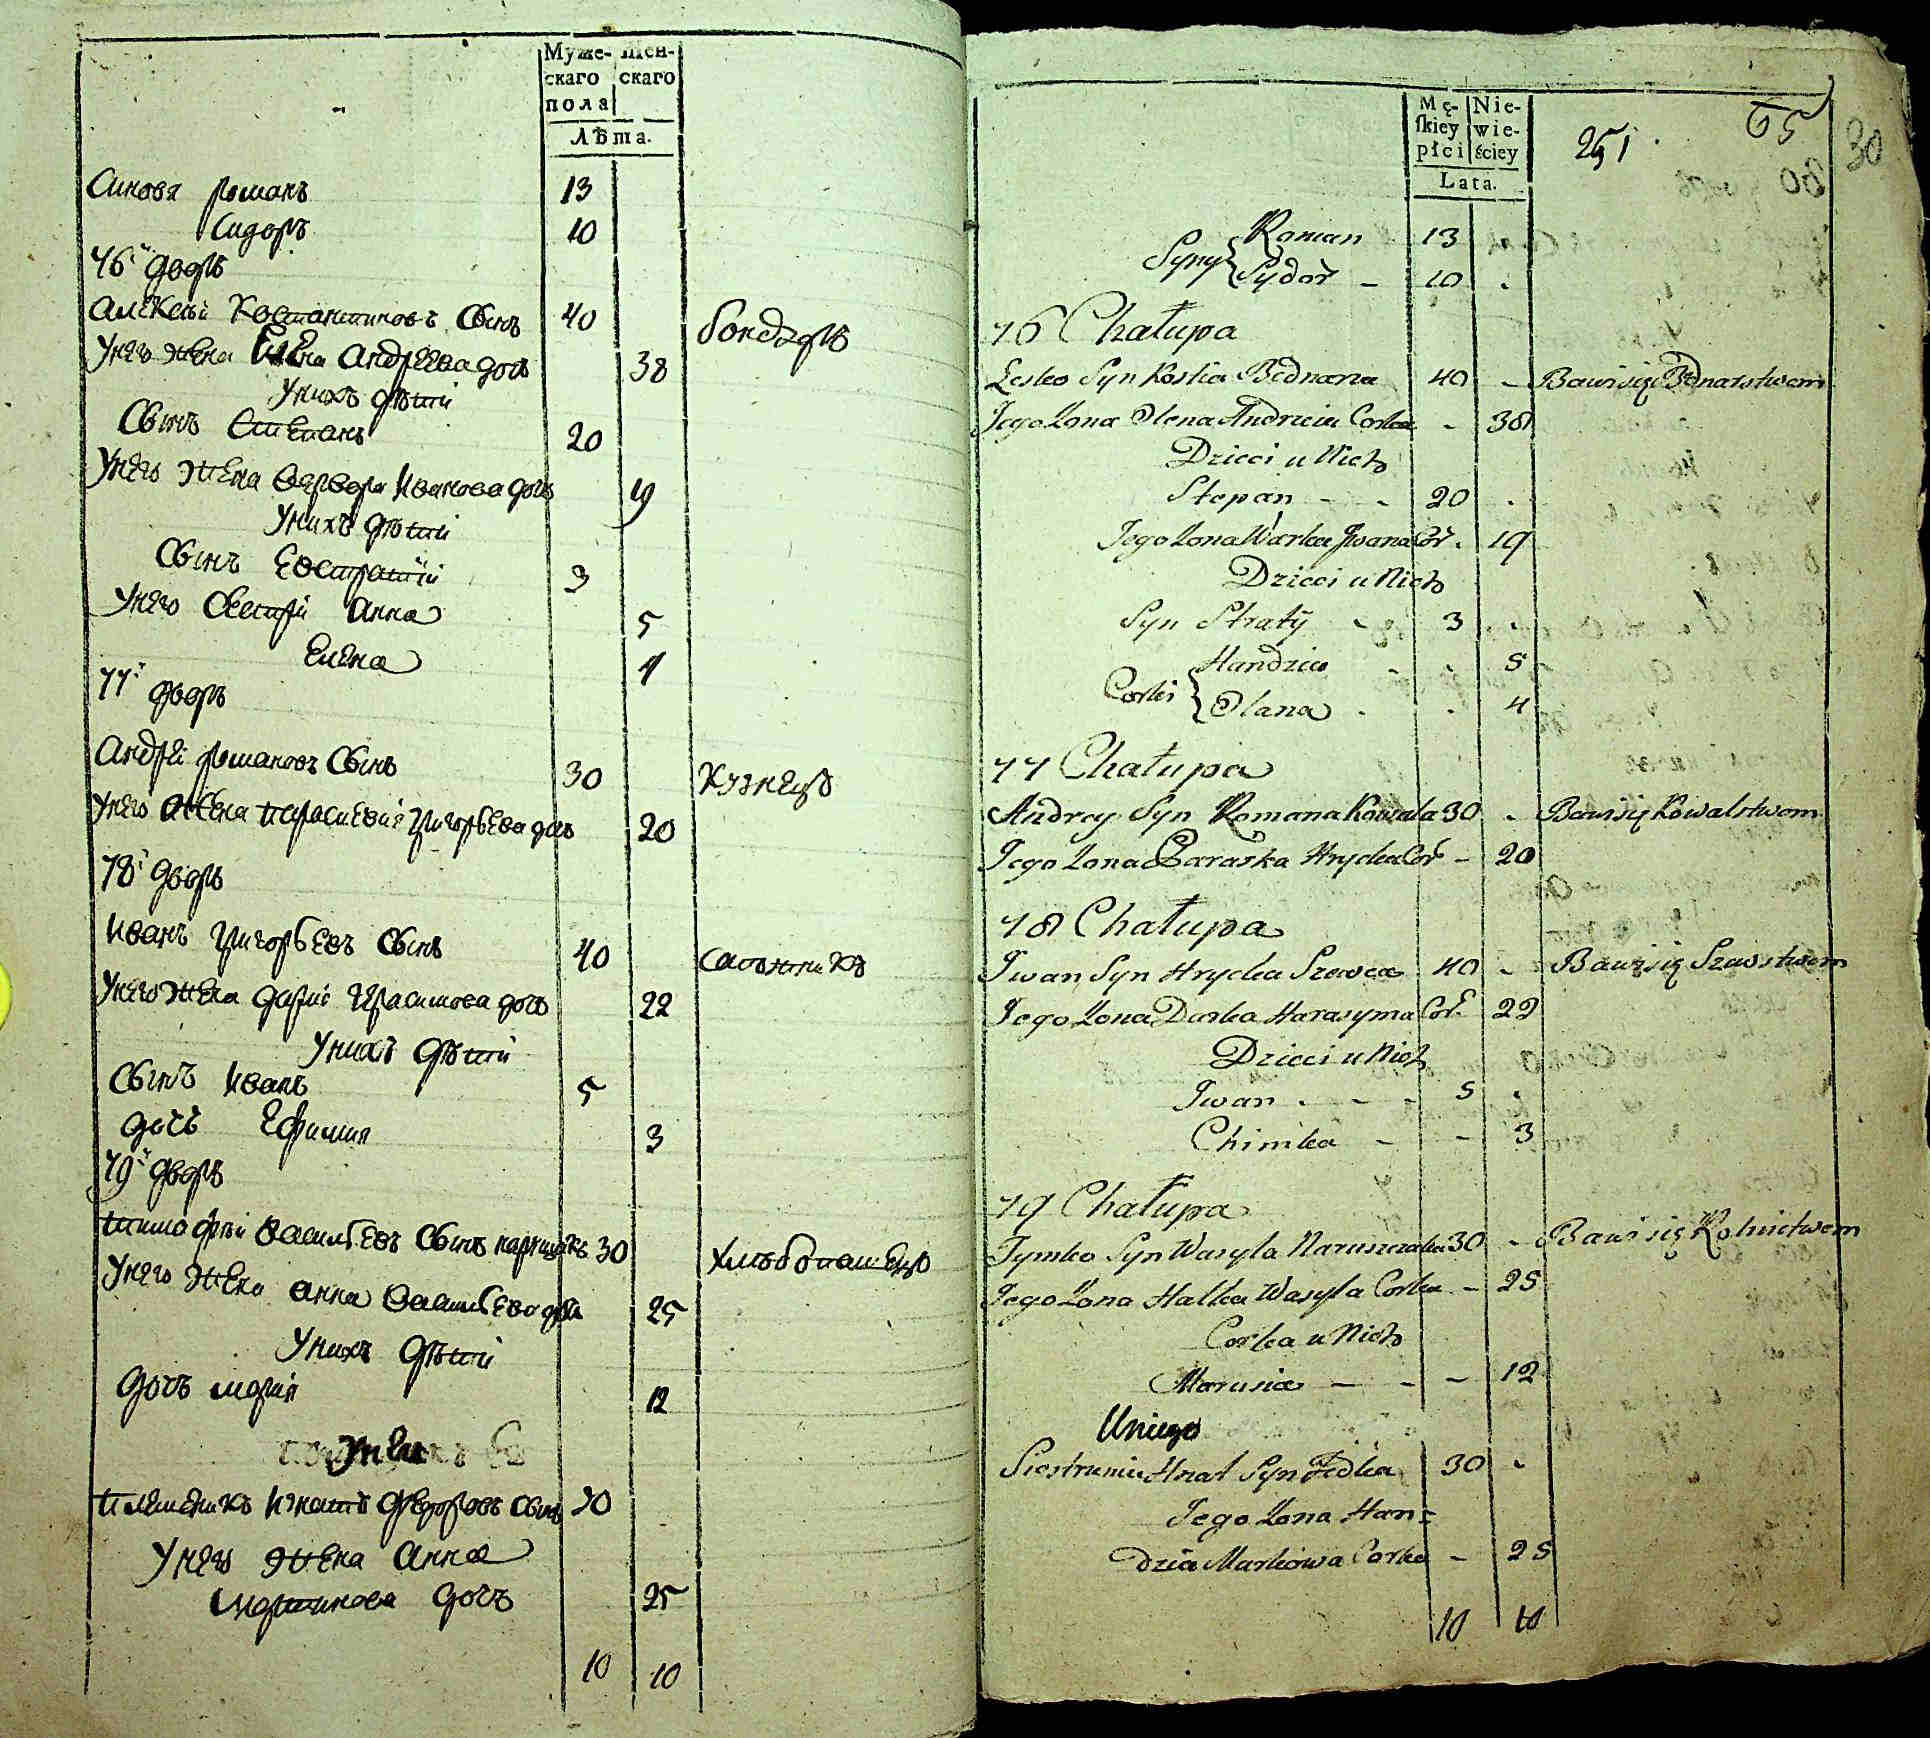 Муже-
скаго
пола
Жен-
скаго
Лѣта.
Синовя романъ 13
Сидоръ 10
76й дворъ
алексѣй Костантиновъ Сынъ 40 бондаръ
Унего жена Елена андреева дочь 38
Унихъ дѣти
Сынъ Степанъ 20
Унего жена варвара Иванова дочь 19
Унихъ дѣти
Сынъ Евстратій 3
Унего Сестри анна 5
Елена 4
77й дворъ
андрей романовъ Сынъ 30 Кузнецъ
Унего жена параскевія григорьева дочь 20
78й дворъ
Иванъ григорьевъ Сынъ 40 сапожникъ
Унего жена дарія герасимова дочь 22
Унихъ дѣти
Сынъ Иванъ 5
дочь Ефимия 3
79й дворъ
тимофѣй васильевъ Сынъ 30 хлѣбопашецъ
Унего жена анна васильева дочь 25
Унихъ дѣти
дочь марія 12
Унего
племеникъ Игнатъ федоровъ Сынъ 30
Унего жена анна
мартинова дочь 25
10 10
Mę-
skiey
płci
Nie-
wie-
ściey
Lata.
251. 65
30
Syny Roman 13
Sydor 10
76 Chałupa
Lesko Syn Kostia Bednarza 40 Bawi się Bednarstwem
Jego Zona Olena Andrzeia Corka 38
Dzieci u Nich
Stepan 20
Jego Zona Warka Jwana Cor. 19
Dzieci u Nich
Syn Stratÿ 3
Corki Handzia 5
Olana 4
77 Chałupa
Andrey Syn Romana Kowala 30 Bawi się Kowalstwem
Jego Zona Paraska Hrycka Cor 20
78 Chałupa
Jwan Syn Hrycka Szewca 40 Bawi się Szewstwem
Jego Zona Darka Harasyma Cor. 22
Dzieci u Nich
Jwan 5
Chimka 3
79 Chałupa
Tymko Syn Wasyla Naruszczaka 30 Bawi się Rolnictwem
Jego Zona Halka Wasyla Corka 25
Corka u Nich
Marusia 12
U niego
Siestrzeniec Hnat Syn Fedka 30
Jego Zona Han=
dzia Markowa Corka 25
10 10